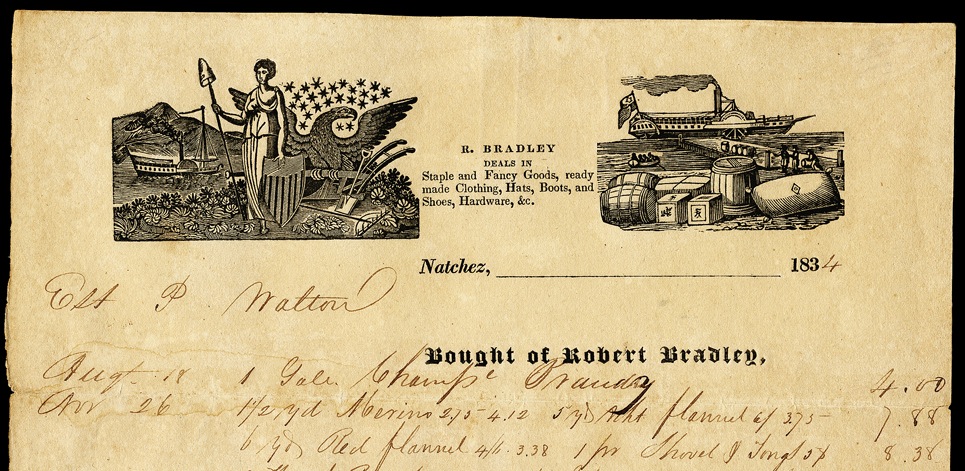 R. BRADLEY
DEALS IN
Staple and Fancy Goods, ready
made Clothing, Hats, Boots, and
Shoes, Hardware, &c.
Natchez, 1834
Est P. Walton
Bought of Robert Bradley,
Augt 18 1 Gal. Champe Brandy 4.00
Nov 26 1 1/2 yd Merino 2,75 4.12 5 yd flannel 6/ 3.75 7.88
6 yd Red flannel 4/6 3.38 1 pr Shovel & Tongs 8.38